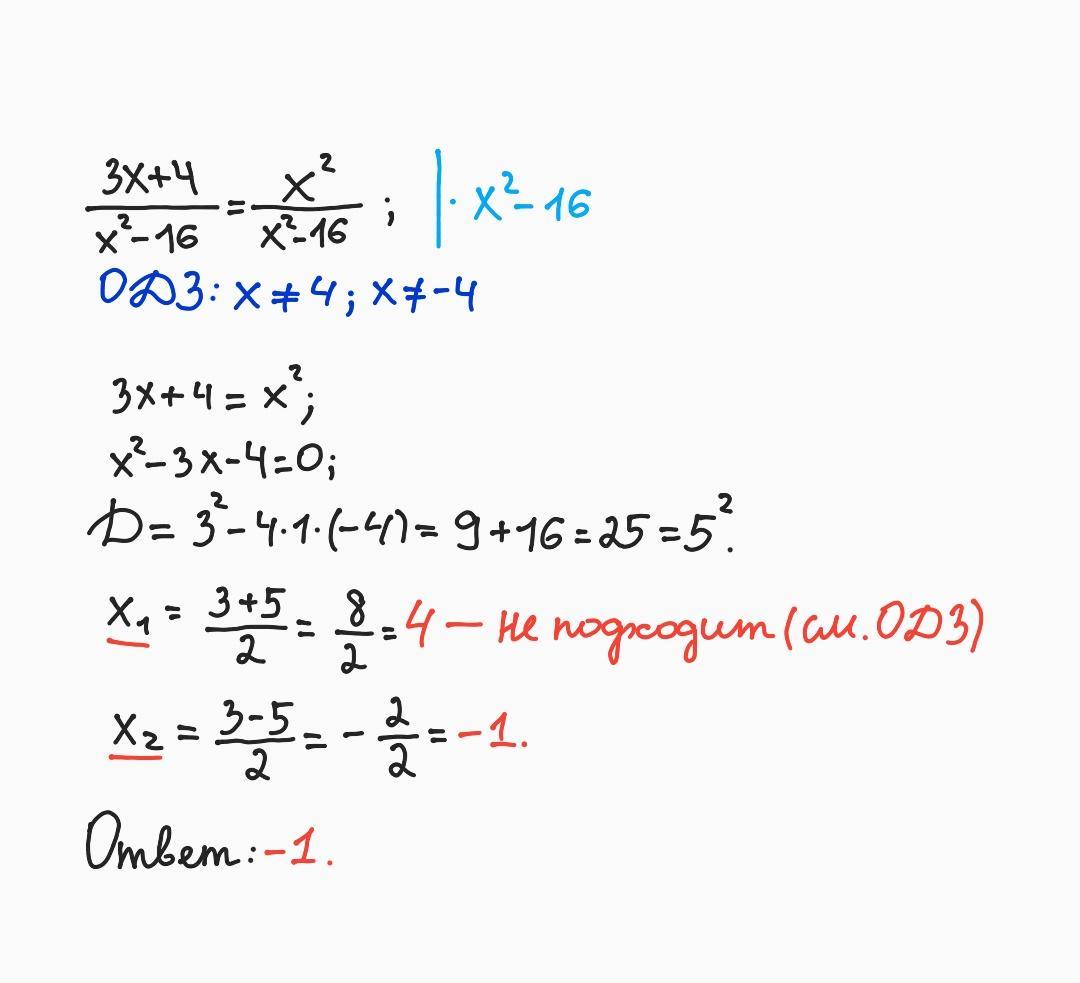 (3x+4)/(x²-16) = x²/(x²-16) ; | · x²-16
ОДЗ: x ≠ 4; x ≠ -4
3x+4 = x²;
x²-3x-4=0;
D = 3²-4·1·(-4) = 9+16 = 25 = 5².
x₁ = (3+5)/2 = 8/2 = 4 — не подходит (см. ОДЗ)
x₂ = (3-5)/2 = -2/2 = -1.
Ответ: -1.